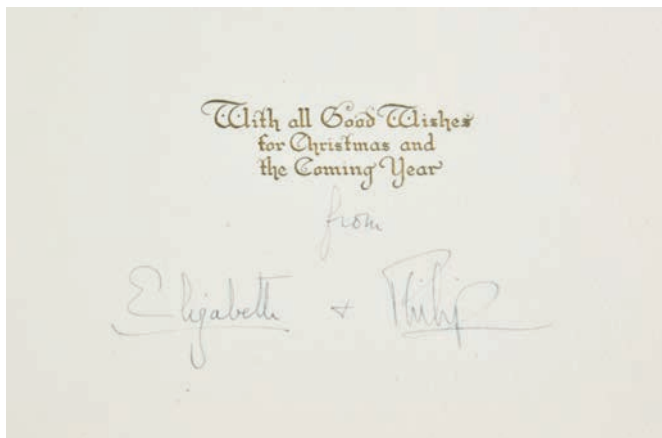 With all Good Wishes
for Christmas and
the Coming Year
from
Elizabeth + Philip